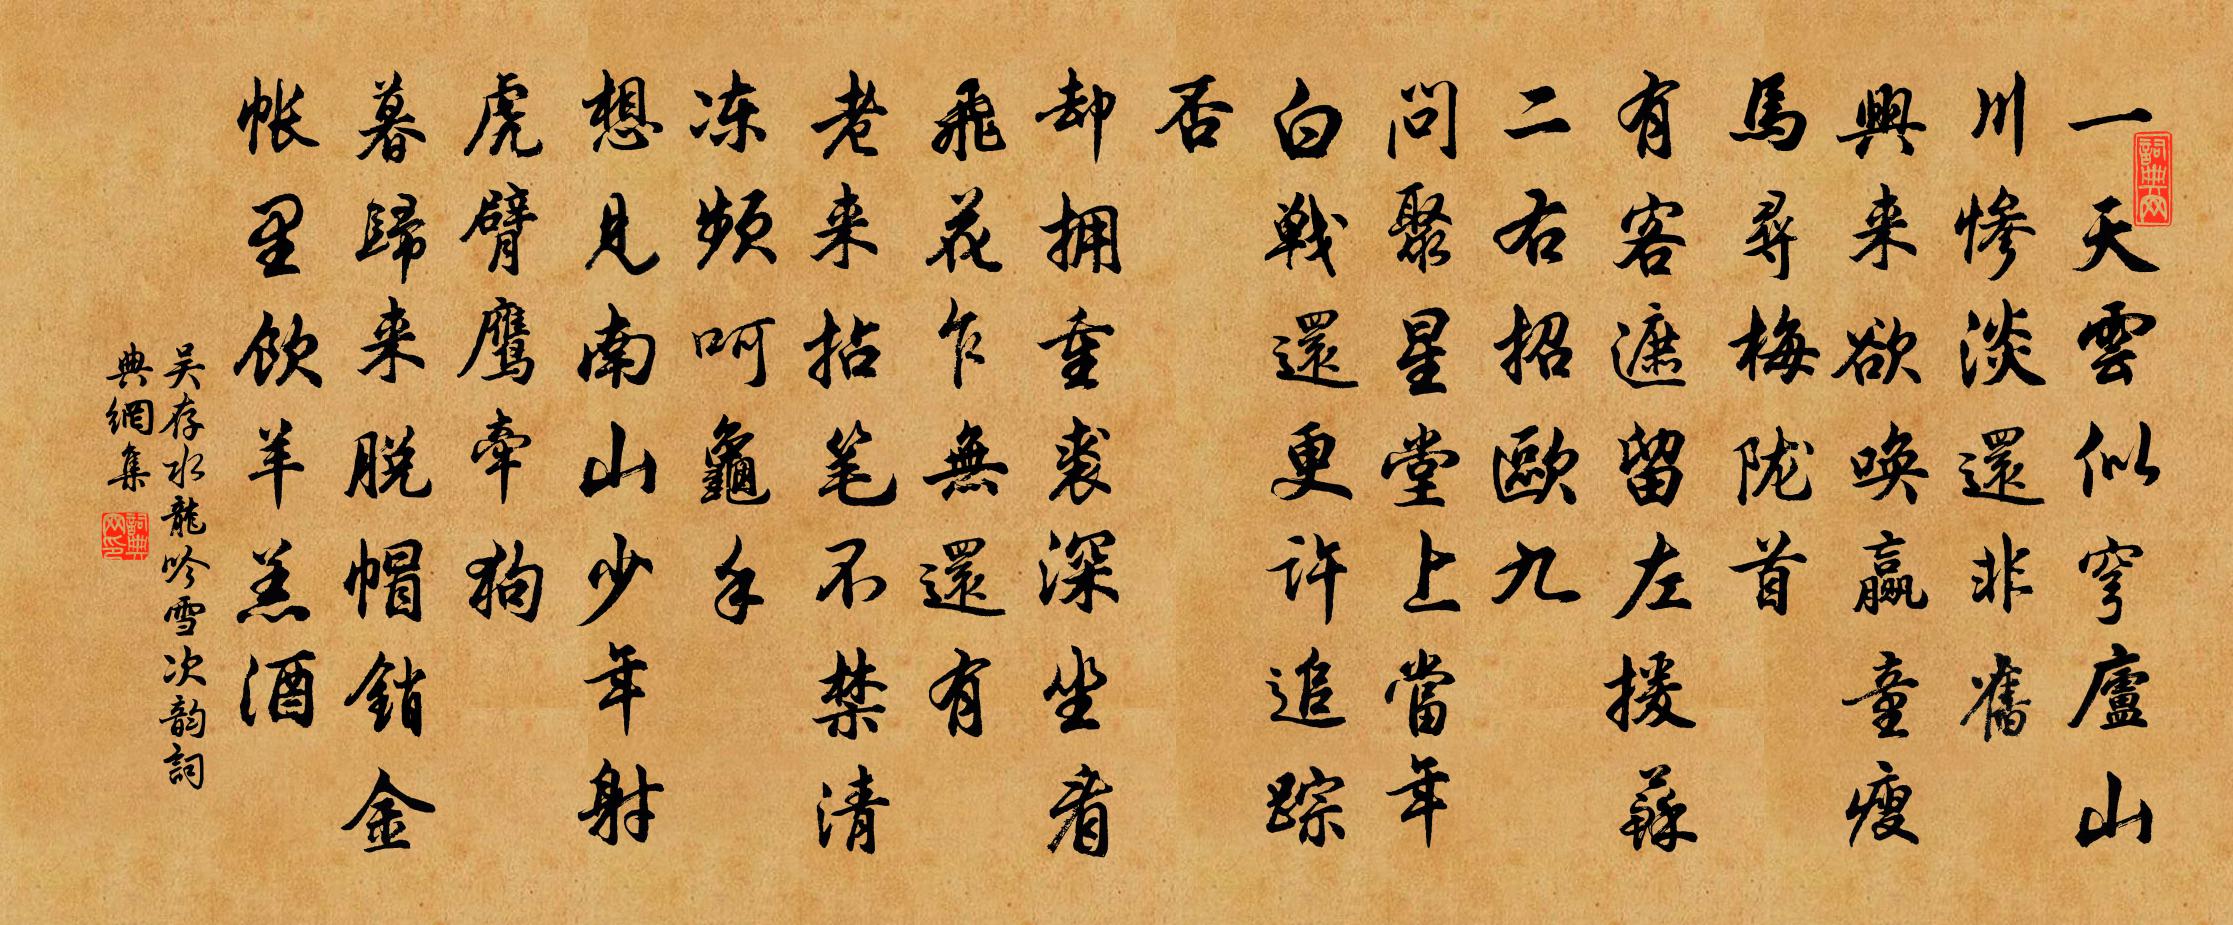 一天雲似穹廬山
川慘淡還非舊
興来欲唤羸童瘦
馬尋梅陇首
有客遮留左援蘇
二右招歐九
問聚星堂上當年
白戦還更许追踪
否
却拥重裘深坐看
飛花乍無還有
老来拈笔不禁清
冻频呵龜手
想見南山少年射
虎臂鹰牽狗
暮歸来脱帽銷金
帐里饮羊羔酒
吴存水龍吟雪次韵詞
典網集
詞典网
詞典网印